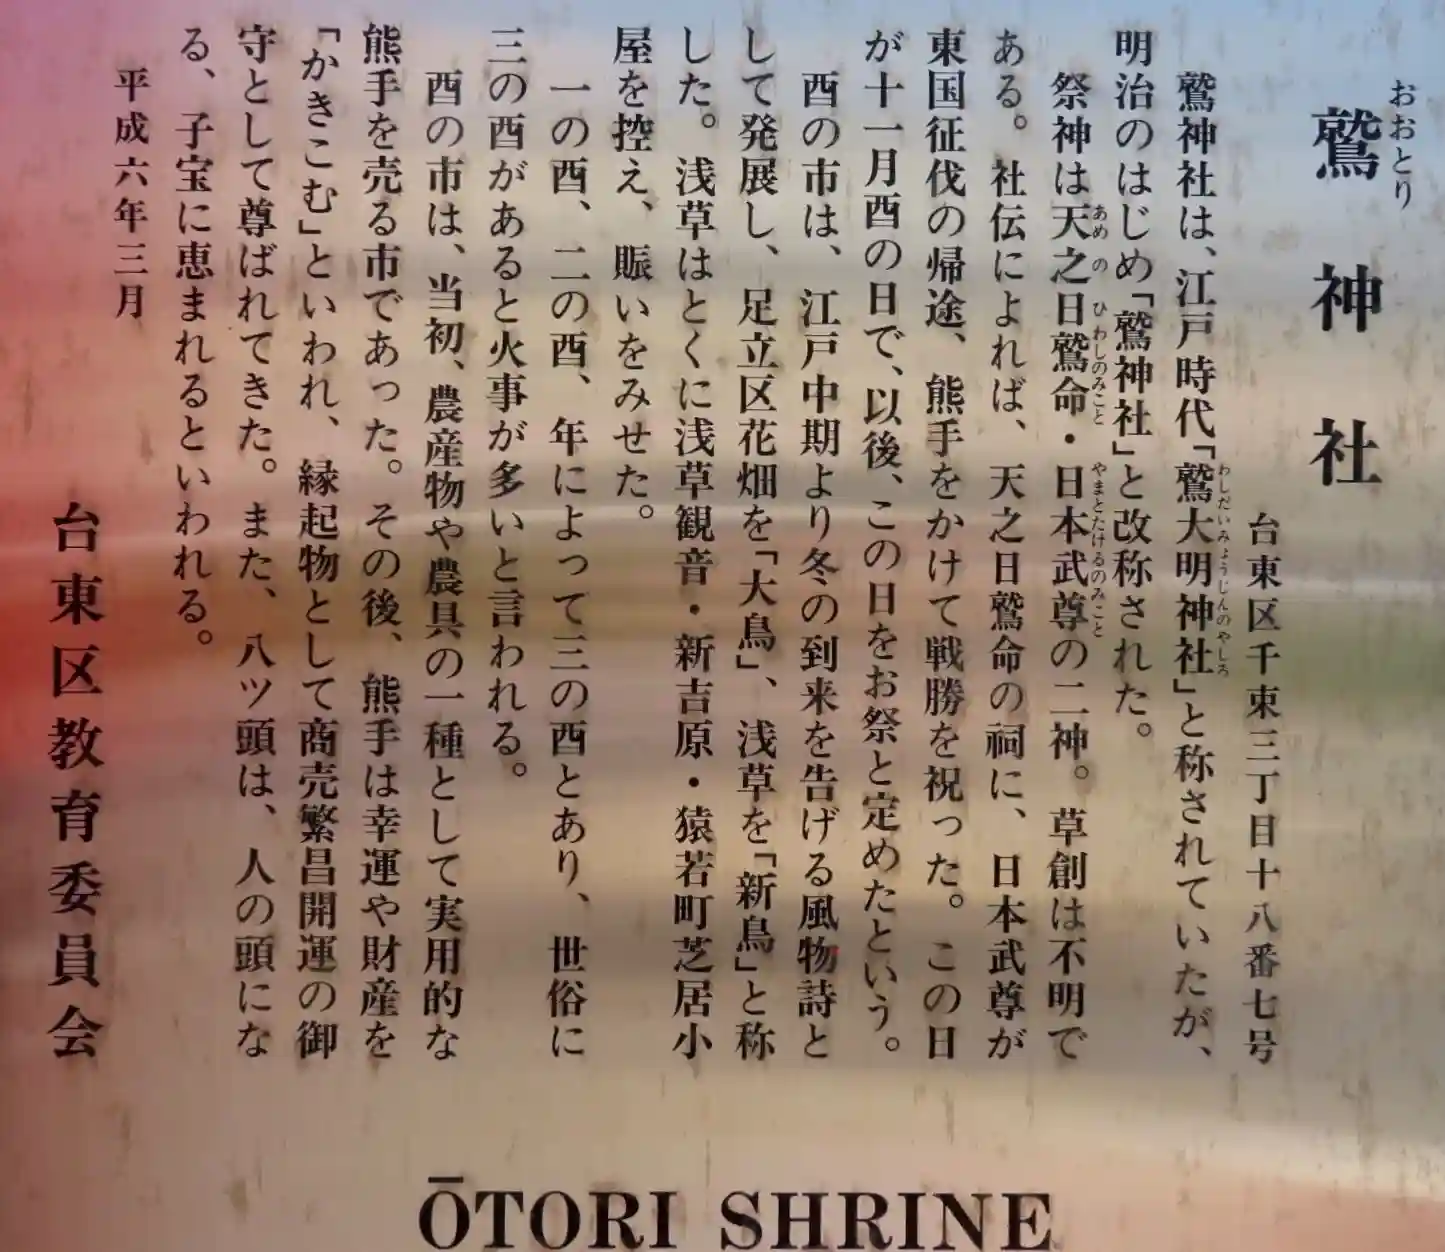 おおとり
鷲神社
台東区千束三丁目十八番七号
鷲神社は、江戸時代「鷲大明神社」と称されていたが、
わしだいみょうじんのやしろ
明治のはじめ「鷲神社」と改称された。
祭神は天之日鷲命・日本武尊の二神。草創は不明で
あめの ひわしのみこと やまとたけるのみこと
ある。社伝によれば、天之日鷲命の祠に、日本武尊が
東国征伐の帰途、熊手をかけて戦勝を祝った。この日
が十一月酉の日で、以後、この日をお祭と定めたという。
酉の市は、江戸中期より冬の到来を告げる風物詩と
して発展し、足立区花畑を「大鳥」、浅草を「新鳥」と称
した。浅草はとくに浅草観音・新吉原・猿若町芝居小
屋を控え、賑いをみせた。
一の酉、二の酉、年によって三の酉とあり、世俗に
三の酉があると火事が多いと言われる。
酉の市は、当初、農産物や農具の一種として実用的な
熊手を売る市であった。その後、熊手は幸運や財産を
「かきこむ」といわれ、縁起物として商売繁昌開運の御
守として尊ばれてきた。また、八ツ頭は、人の頭にな
る、子宝に恵まれるといわれる。
平成六年三月
台東区教育委員会
ŌTORI SHRINE